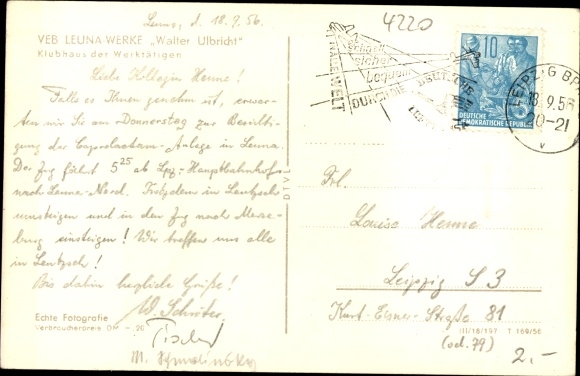 Leuna, d. 18.9.56.
4220
VEB LEUNA-WERKE „Walter Ulbricht"
Klubhaus der Werktätigen
Liebe Kollegin Henne!
Falls es Ihnen genehm ist, erwar-
ten wir Sie am Donnerstag zur Besichti-
gung der Caprolactam-Anlage in Leuna.
Der Zug fährt 5 25 ab Lpz.-Hauptbahnhof
nach Leuna-Nord. Trotzdem in Leutzsch
umsteigen und in den Zug nach Merse-
burg einsteigen! Wir treffen uns alle
in Leutzsch!
Bis dahin herzliche Grüße!
W. Schröter
Tischer
M.
Echte Fotografie
Verbraucherpreis DM -.20
DTVL
schnell
sicher
bequem
DURCH DIE DEUTSCHE
WELT
10
DEUTSCHE
DEMOKRATISCHE REPUBLIK
LEIPZIG BPA
18.9.56
20-21
v
Frl.
Louise Henne
Leipzig S 3
Kurt-Eisner-Straße 81
(od. 79)
III/18/197 T 169/56
2.-